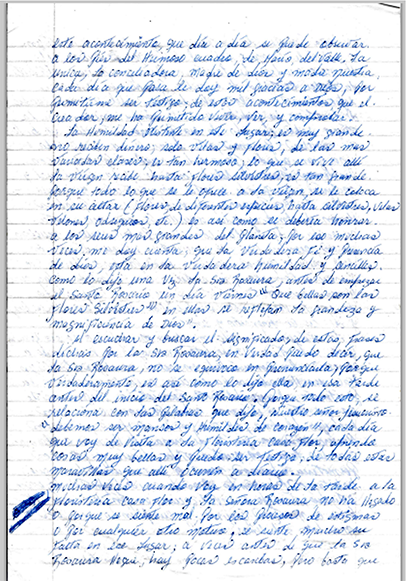 este acontecimiento, que día a día se puede observar
a los pies del hermoso cuadro, de María, del Valle, la
unica, la conciliadora, madre de dios y madre nuestra,
cada día que pasa le doy mil gracias a por
permitirme ser testigo, de estos acontecimientos que el
creador, me ha permitido vivir, ver, y comprobar.
La humildad en este lugar, es muy grande
no reciben dinero, solo velas y flores, de las mas
variadas clases, es tan hermoso, lo que se vive allí
la virgen recibe hasta flores silvestres, es tan grande.
porque todo lo que se le ofrece a la virgen, se le coloca
en su altar (flores de diferentes especies, hasta silvestres, velas
velones, etc.) es así como se debería honrar
a los seres mas grandes del planeta; por eso muchas
veces, me doy cuenta; que la verdadera fé y presencia
de dios, está en la verdadera humildad y sencillez.
Como lo dijo una vez la Sra Rosaura, antes de empezar
el Santo Rosario un día viernes "Que bellas son las
flores silvestres" en ellas se reflejan la grandeza y
magnificencia de Dios".
El escuchar y buscar el significado, de estas, frases
dichas por la Sra Rosaura, en verdad puedo decir, que
la Sra Rosaura, no se equivoca en pronunciarla, porque
verdaderamente, es así como lo dijo ella en esa tarde
antes del inicio del Santo Rosario. porque todo esto, se
relaciona con las palabras que dijo, nuestro señor Jesucristo
"debemos ser mansos y humildes de corazón"; cada día
que voy de visita a la floristería cara flor, aprendo
cosas muy bellas y puedo ser testigo, de todas estas
maravillas que allí ocurren a diario.
Muchas veces cuando voy en horas de la tarde a la
floristería cara flor y la señora Rosaura no ha llegado
o porque se siente mal por los de estigmas
o por cualquier otro motivo, se siente mucho su
falta en ese lugar; a veces antes de que la Sra
Rosaura llegue, hay pocas escarchas, pero basta que